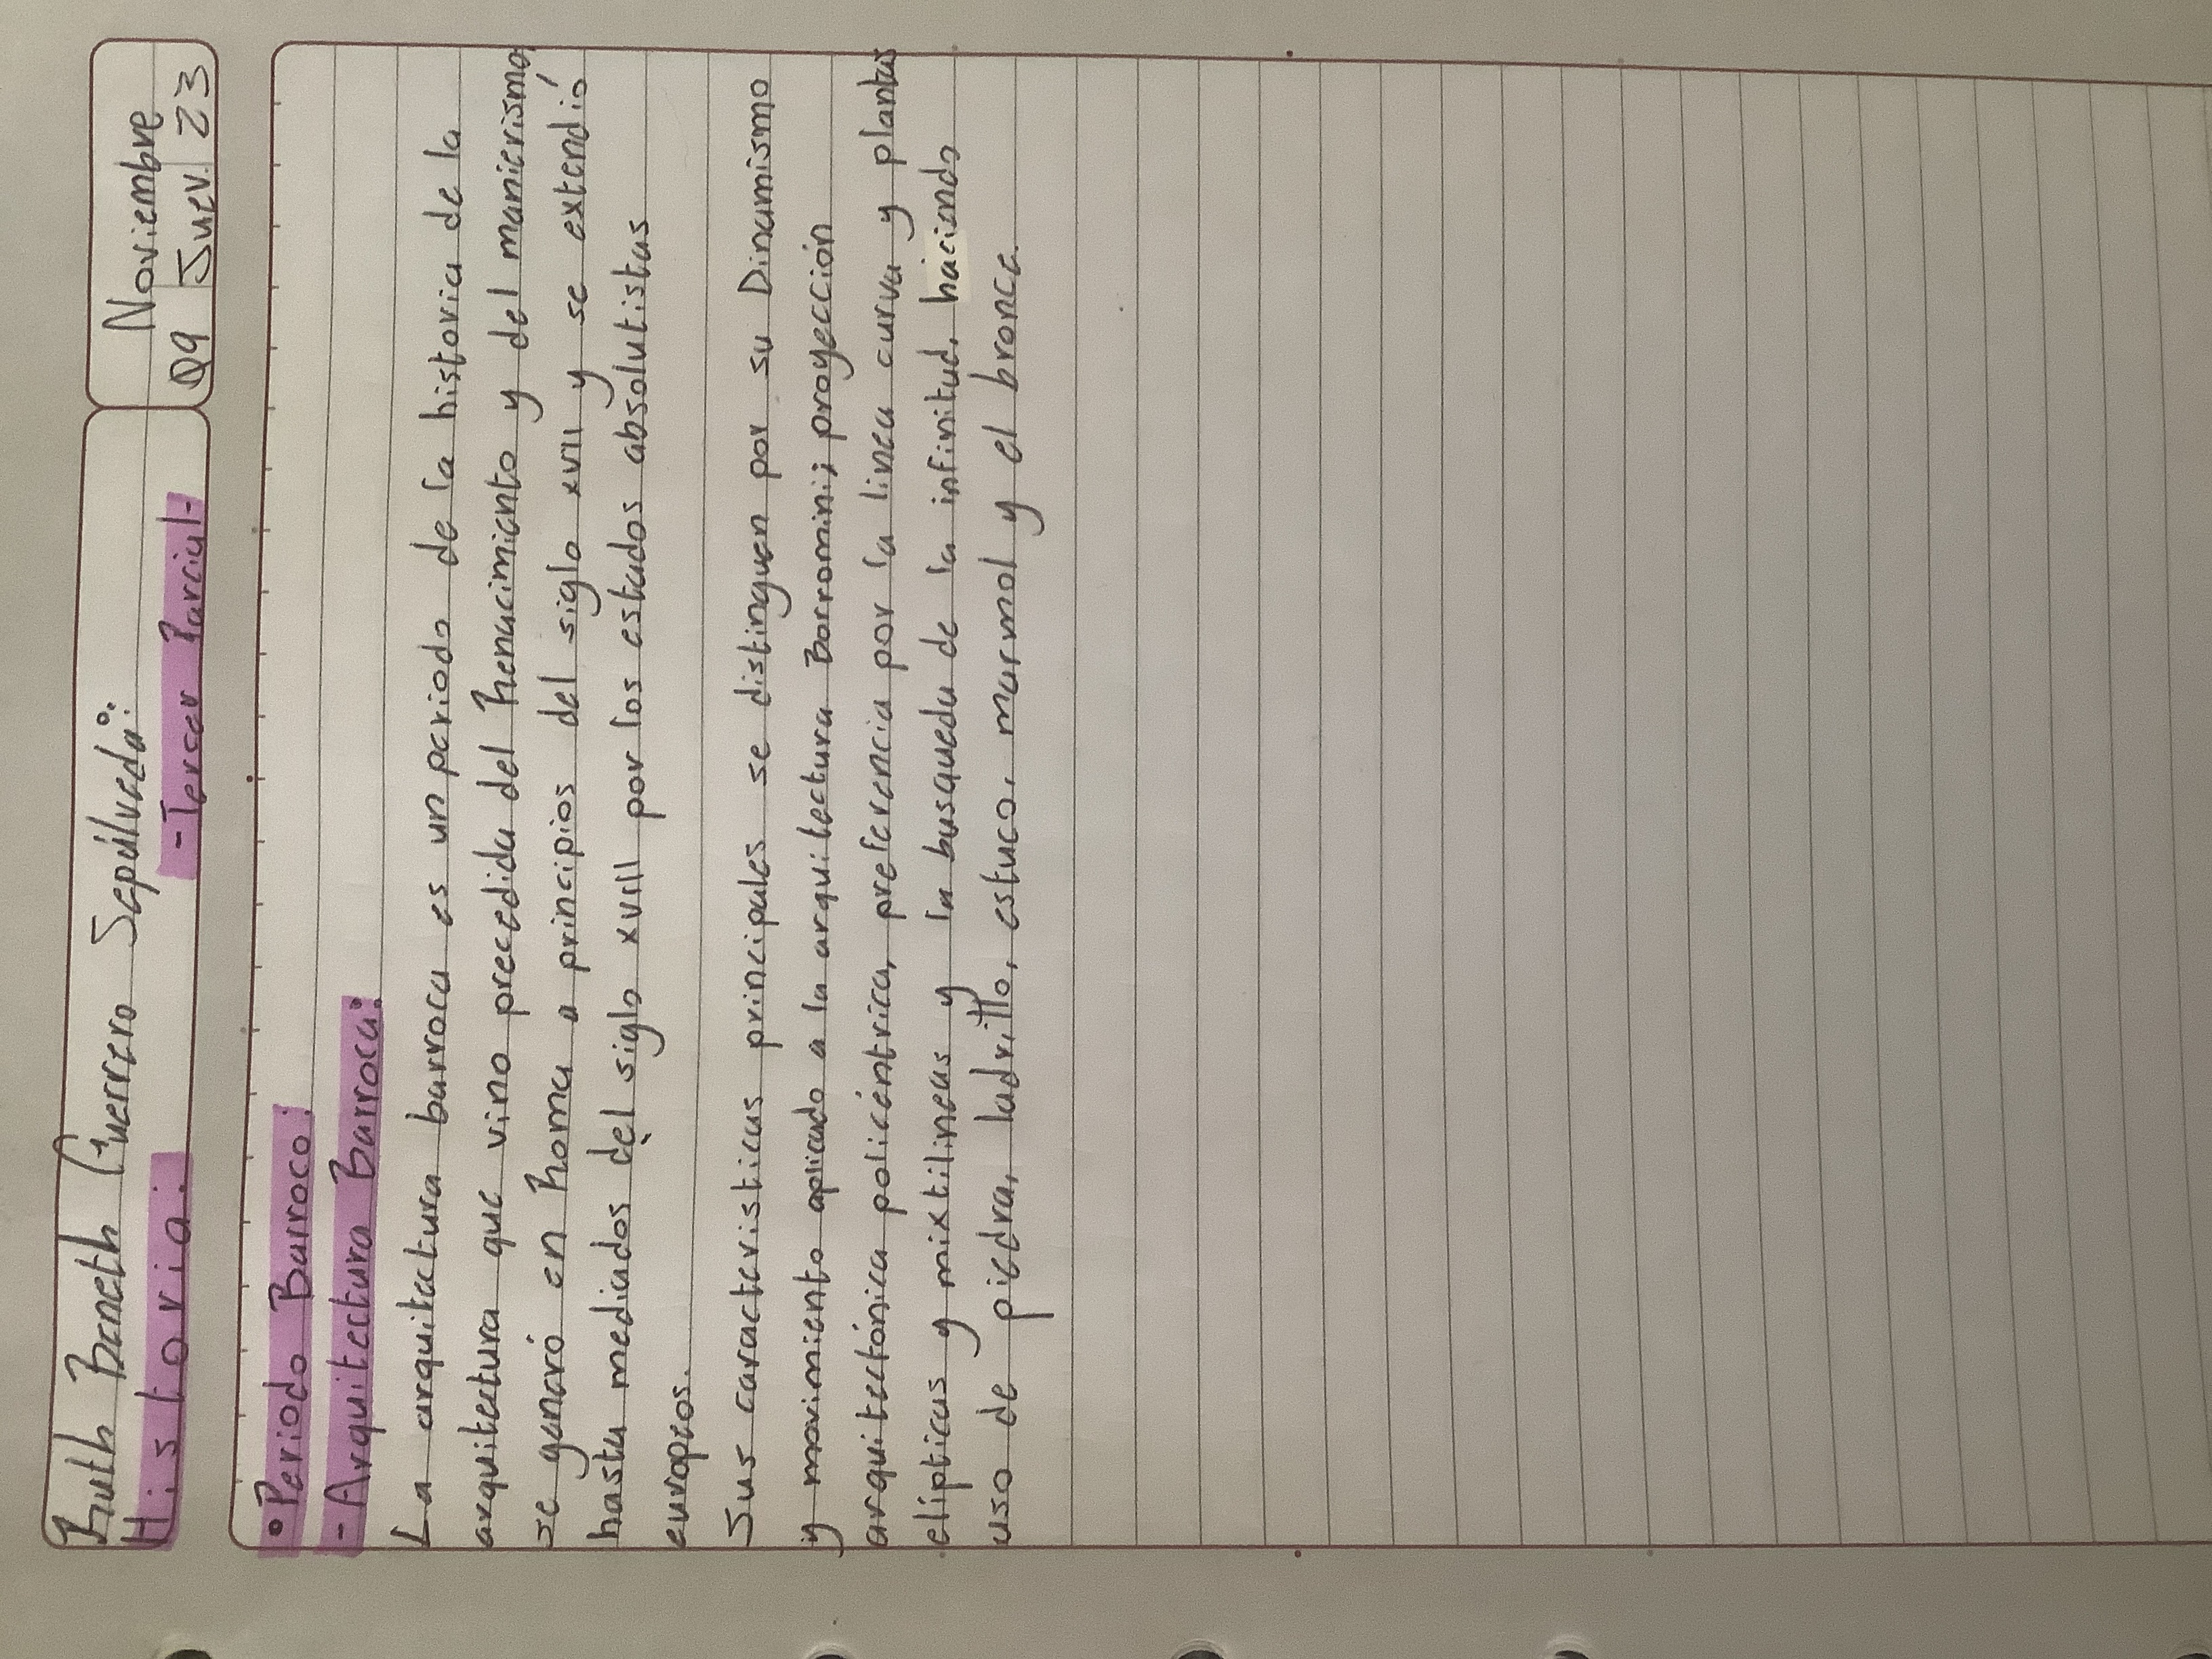 Ruth Baneth Guerrero Sepúlveda:
Historia.
-Tercer Parcial-
Noviembre
09 Juev. 23
• Periodo Barroco:
- Arquitectura Barroca:
La arquitectura barroca es un periodo de la historia de la
arquitectura que vino precedida del Renacimiento y del manierismo,
se generó en Roma a principios del siglo XVII y se extendió
hasta mediados del siglo XVIII por los estados absolutistas
europeos.
Sus caracteristicas principales se distinguen por su Dinamismo
y movimiento aplicado a la arquitectura Borromini; proyección
arquitectónica policéntrica, preferencia por la linea curva y plantas
elipticas y mixtilineas y la busqueda de la infinitud, haciendo
uso de piedra, ladrillo, estuco, marmol y el bronce.